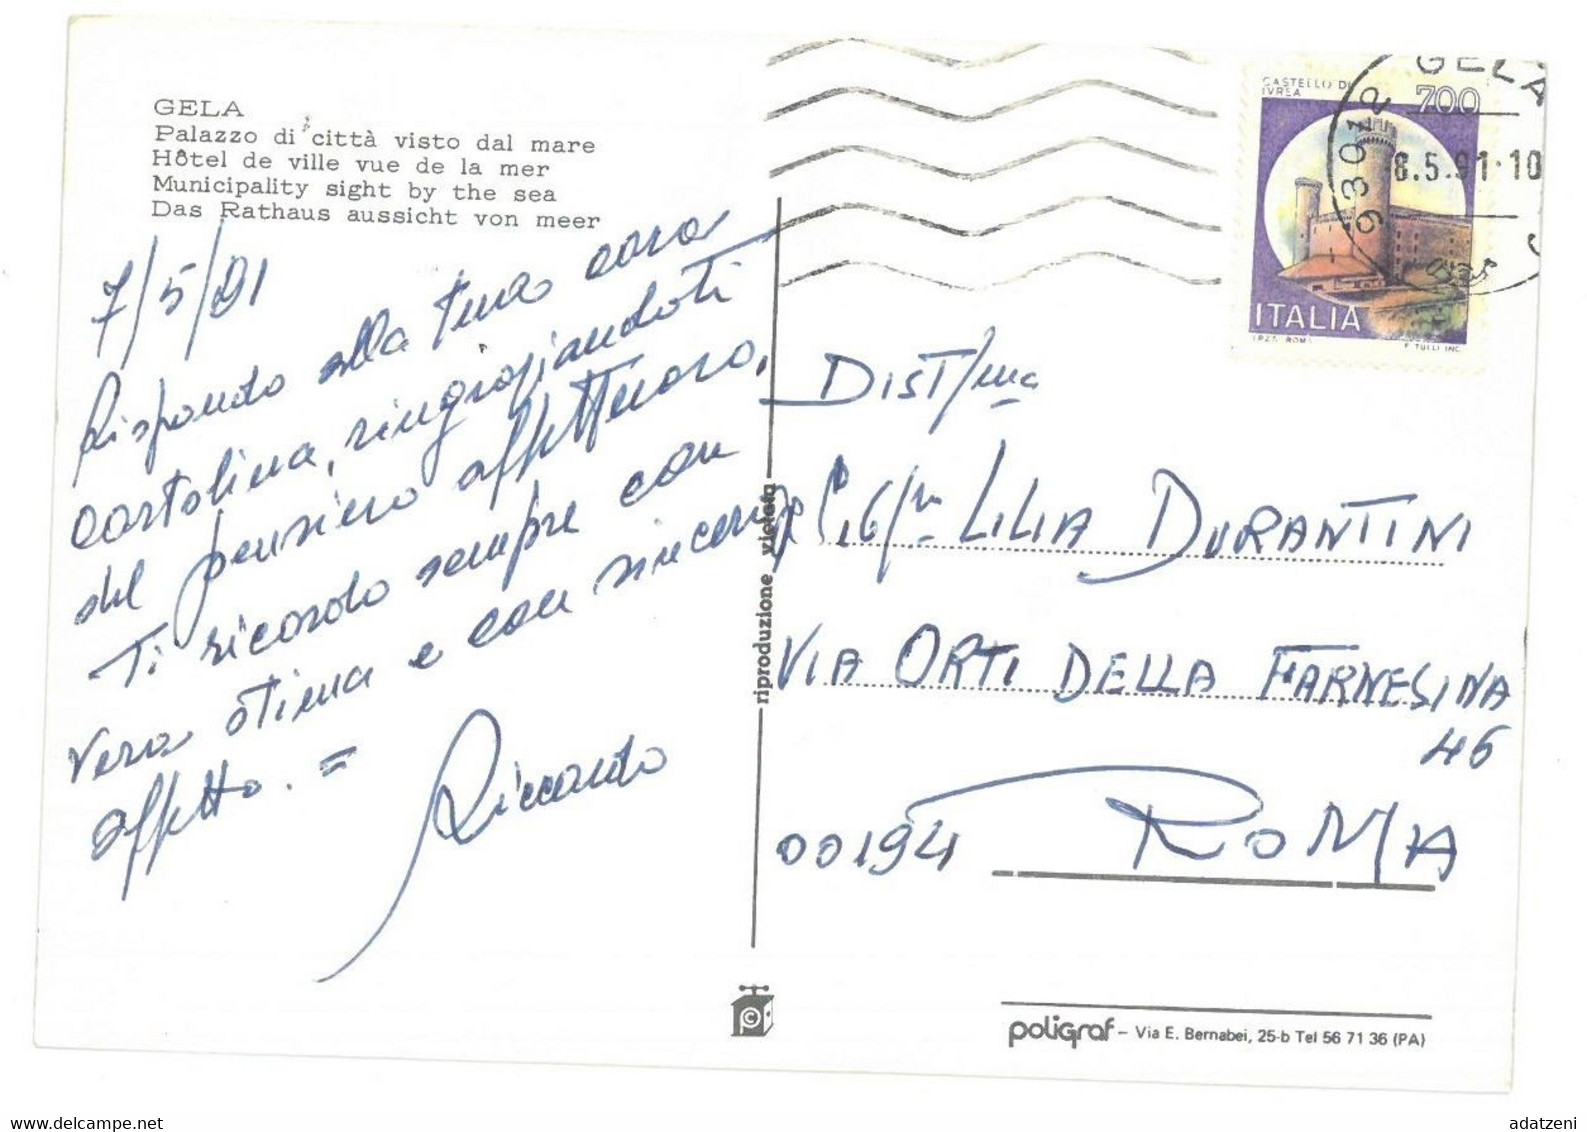 GELA
Palazzo di città visto dal mare
Hôtel de ville vue de la mer
Municipality sight by the sea
Das Rathaus aussicht von meer
7/5/91
Rispondo alla tua cara
cartolina, ringraziandoti
del pensiero affettuoso.
Ti ricordo sempre con
vera stima e con sincero
affetto. =
Riccardo
riproduzione vietata
CASTELLO DI
IVREA
700
ITALIA
I.P.Z.S. ROMA
F. TULLI INC.
93012 GELA
8.5.91.10
DIST/ma
LILIA DURANTINI
VIA ORTI DELLA FARNESINA
46
00194 ROMA
poligraf – Via E. Bernabei, 25-b Tel 56 71 36 (PA)
www.delcampe.net
adatzeni